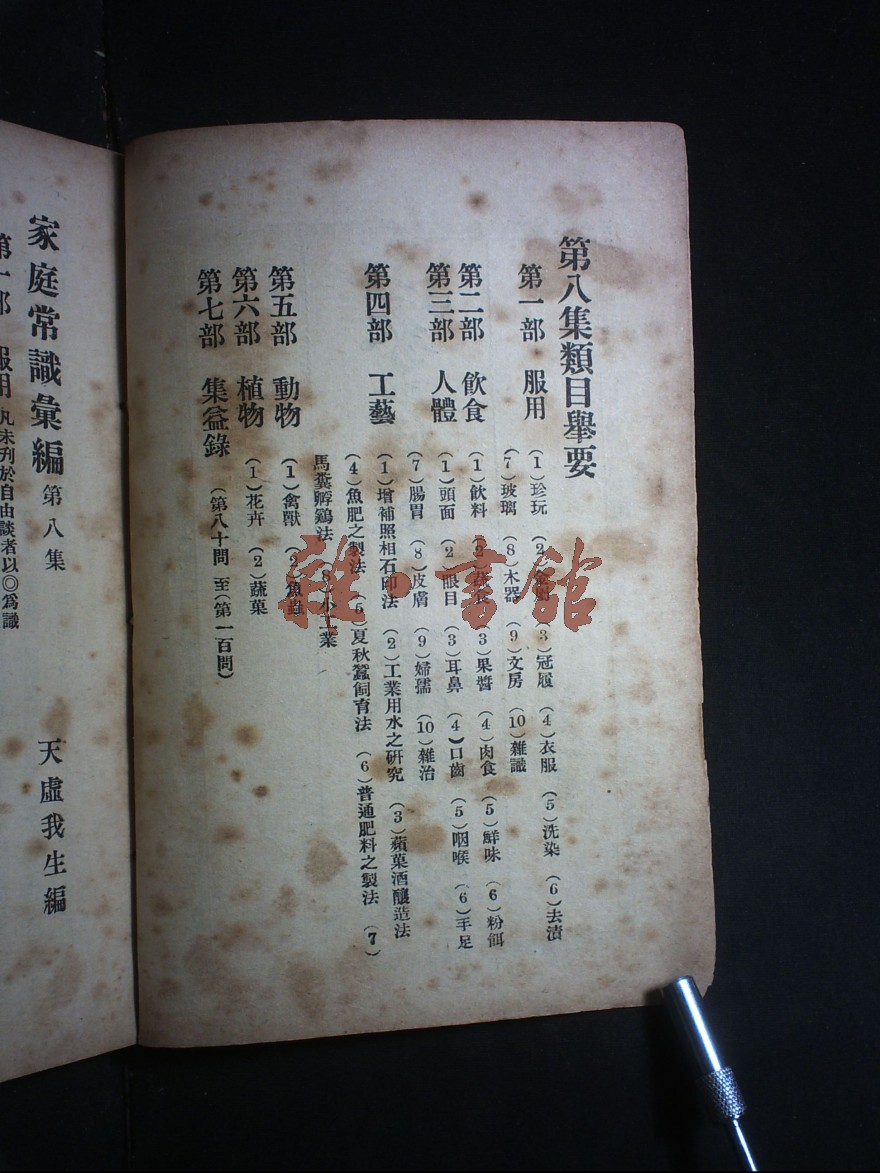 第八集類目舉要
第一部 服用 (1)珍玩 (2) (3)冠履 (4)衣服 (5)洗染 (6)去漬
(7)玻璃 (8)木器 (9)文房 (10)雜識
第二部 飲食 (1)飲料 (2)蔬食 (3)果醬 (4)肉食 (5)鮮味 (6)粉餌
第三部 人體 (1)頭面 (2)眼目 (3)耳鼻 (4)口齒 (5)咽喉 (6)手足
(7)腸胃 (8)皮膚 (9)婦孺 (10)雜治
第四部 工藝 (1)增補照相石印法 (2)工業用水之研究 (3)蘋菓酒釀造法
(4)魚肥之製法 (5)夏秋蠶飼育法 (6)普通肥料之製法 (7)
馬糞孵鷄法 (8)小工業
第五部 動物 (1)禽獸 (2)魚蟲
第六部 植物 (1)花卉 (2)蔬菓
第七部 集益錄 (第八十問 至(第一百問)
家庭常識彙編 第八集 天虛我生編
第一部 服用 凡未刋於自由談者以◎爲識
雜·書館